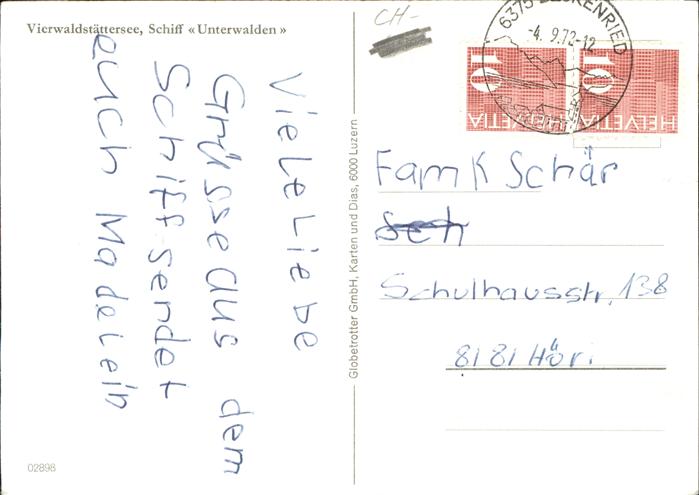 Vierwaldstättersee, Schiff «Unterwalden»
CH-
6375 BECKENRIED
-4. 9.72-12
10
HELVETIA
10
HELVETIA
Viele Liebe
Grüsse aus dem
Schiff sendet
euch Madelein
Globetrotter GmbH, Karten und Dias, 6000 Luzern
Fam K Schär
Sch
Schulhausstr. 138
8181 Höri
02898